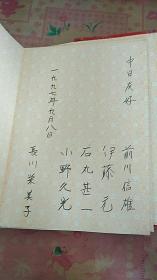 中日友好
前川信雄
伊藤克
石丸甚一
小野久光
長川栄美子
一九九七年九月八日